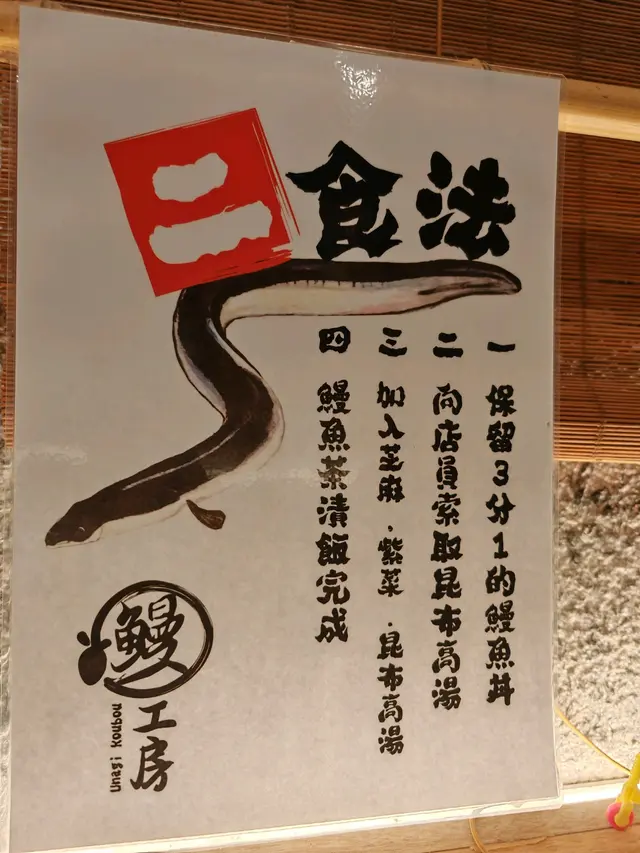 二食法
一 保留3分1的鰻魚丼
二 向店員索取昆布高湯
三 加入芝麻，紫菜，昆布高湯
四 鰻魚茶漬飯完成
鰻
工房
Unagi Koubou